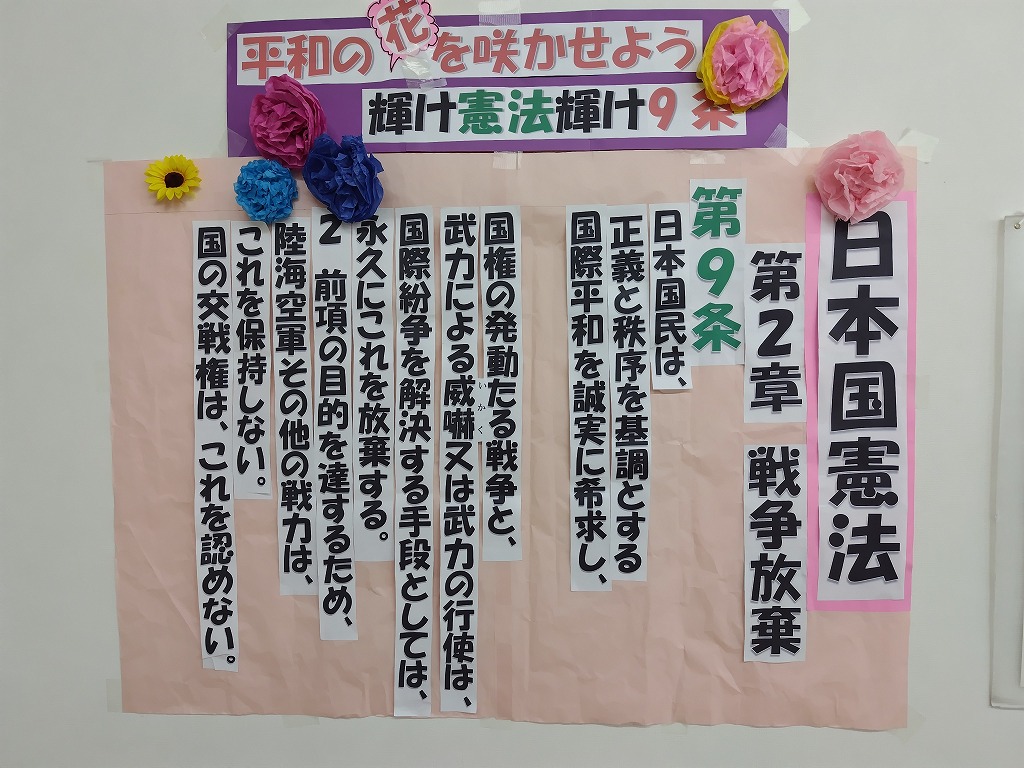 平和の花を咲かせよう
輝け憲法輝け9条
日本国憲法
第2章 戦争放棄
第9条
日本国民は、
正義と秩序を基調とする
国際平和を誠実に希求し、
国権の発動たる戦争と、
武力による威嚇又は武力の行使は、
いかく
国際紛争を解決する手段としては、
永久にこれを放棄する。
2 前項の目的を達するため、
陸海空軍その他の戦力は、
これを保持しない。
国の交戦権は、これを認めない。